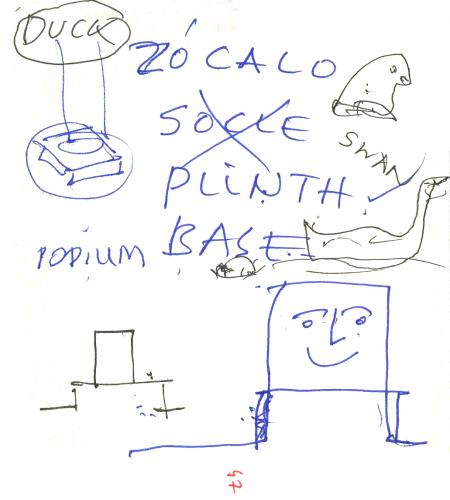 DUCK
ZÓCALO
SOCLE
SWAN
PLINTH
PODIUM BASE
47